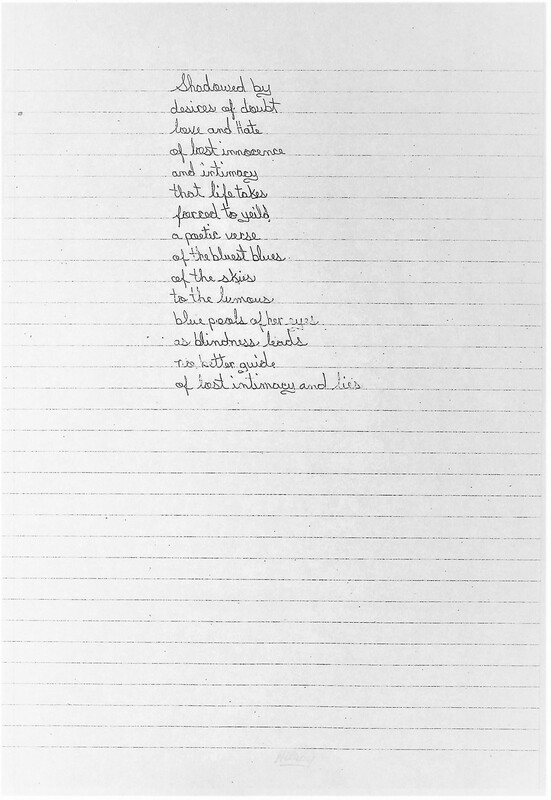 Shadowed by
desires of doubt
love and Hate
of lost innocence
and intimacy
that life takes
forced to yeild
a poetic verse
of the bluest blues
of the skies
to the lumous
blue pools of her eyes
as blindness leads
no better guide
of lost intimacy and lies